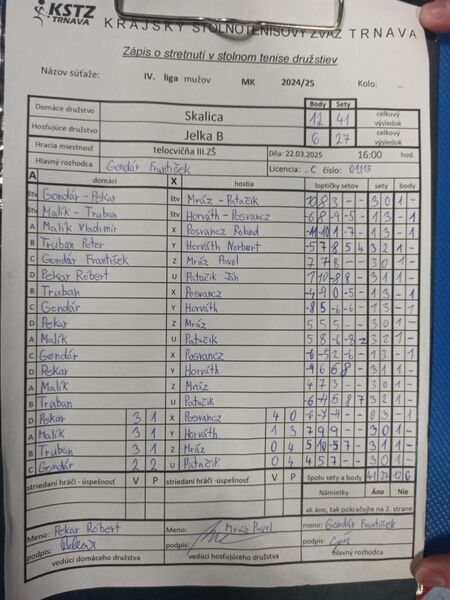 KSTZ TRNAVA
KRAJSKÝ STOLNOTENISOVÝ ZVÄZ TRNAVA
Zápis o stretnutí v stolnom tenise družstiev
Názov súťaže: IV. liga mužov MK 2024/25 Kolo: ..
Body Sety
Domáce družstvo Skalica 12 41 celkový výsledok
Hosťujúce družstvo Jelka B 6 27 celkový výsledok
Hracia miestnosť telocvičňa III.ZŠ Dňa: 22.03.2025 16:00 hod.
Hlavný rozhodca Gondár František Licencia: .. C číslo: 01115
A domáci X hostia loptičky setov sety body
štv Gondár - Pekar štv Mráz - Patačik 3 0 1 -
štv Malík - Truban štv Horváth - Posvancz -6 8 -9 -5 - 1 3 - 1
A Malík Vladimír X Posvancz Roland 1 3 - 1
B Truban Peter Y Horváth Norbert -5 7 8 5 4 3 2 1 -
C Gondár František Z Mráz Pavol 7 7 8 - - 3 0 1 -
D Pekar Róbert U Patačik Ján 3 1 1 -
B Truban X Posvancz 1 3 - 1
C Gondár Y Horváth -8 5 -6 -6 - 1 3 - 1
D Pekar Z Mráz 5 5 5 - - 3 0 1 -
A Malík U Patačik 3 2 1 -
C Gondár X Posvancz -6 -5 2 -6 - 1 3 - 1
D Pekar Y Horváth -9 6 6 8 - 3 1 1 -
A Malík Z Mráz 4 7 3 - - 3 0 1 -
B Truban U Patačik -6 -4 5 8 7 3 2 1 -
D Pekar 3 1 X Posvancz 4 0 -6 -7 -4 - - 0 3 - 1
A Malík 3 1 Y Horváth 1 3 7 9 9 - - 3 0 1 -
B Truban 3 1 Z Mráz 0 4 5 10 -5 7 - 3 1 1 -
C Gondár 2 2 U Patačik 0 4 4 5 7 - - 3 0 1 -
striedaní hráči - úspešnosť V P striedaní hráči - úspešnosť V P Spolu sety a body 41 27 12 6
Námietky Áno Nie
ak áno, tak pokračujte na 2. strane
Meno: Pekar Róbert Meno: Mráz Pavol meno: Gondár František
podpis: podpis: podpis:
vedúci domáceho družstva vedúci hosťujúceho družstva hlavný rozhodca